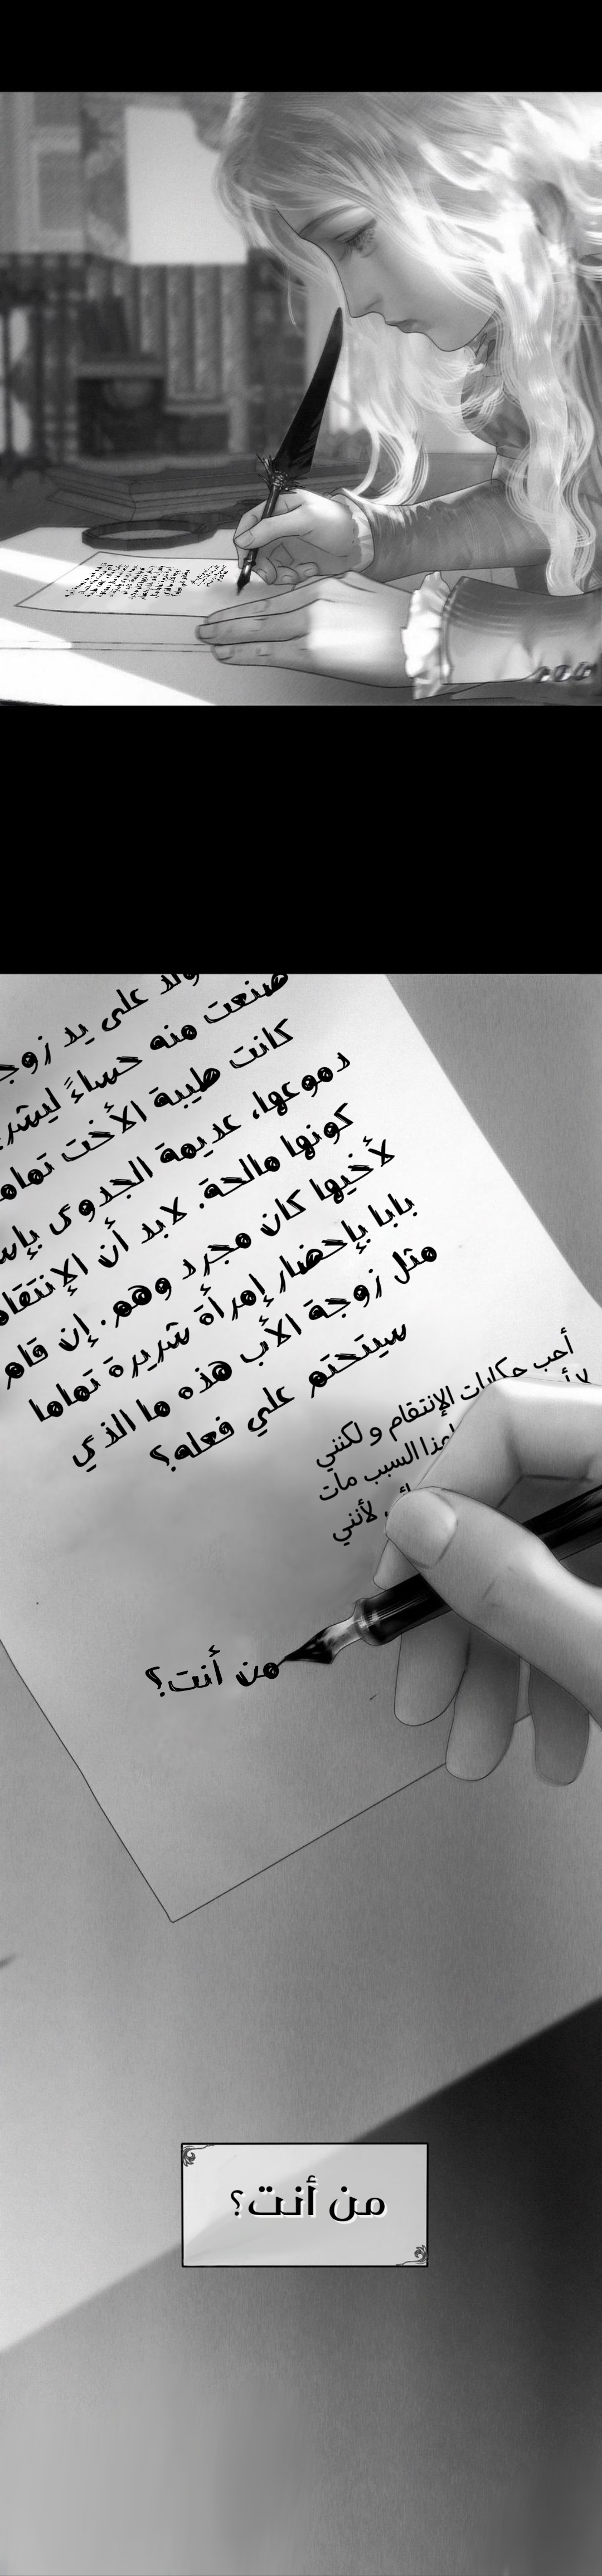 ولد على يد زوج
صنعت منه حساءً ليشر
كانت طيبة الأخت تماما
دموعها، عديمة الجدوى بإس
كونها مالحة. لابد أن الإنتقام
لأخيها كان مجرد وهم. إن قام
بابا بإحضار إمرأة شريرة تماما
مثل زوجة الأب هذه ما الذي
سيتحتم علي فعله؟
أحب حكايات الإنتقام و لكنني
لهذا السبب مات
لأنني
من أنت؟
من أنت؟